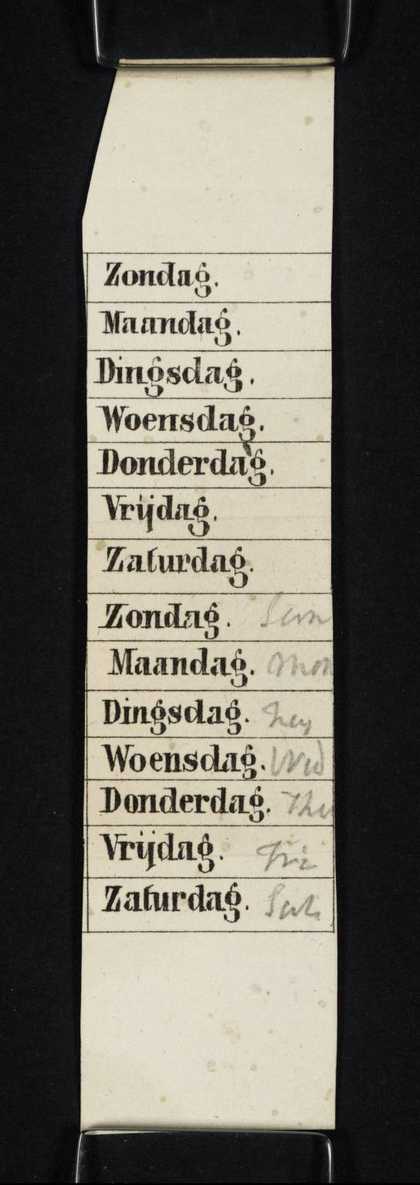 Zondag.
Maandag.
Dingsdag.
Woensdag.
Donderdag.
Vrijdag.
Zaturdag.
Zondag. Sun
Maandag. Mon
Dingsdag.
Woensdag. Wed
Donderdag. Thu
Vrijdag. Fri
Zaturdag. Sat